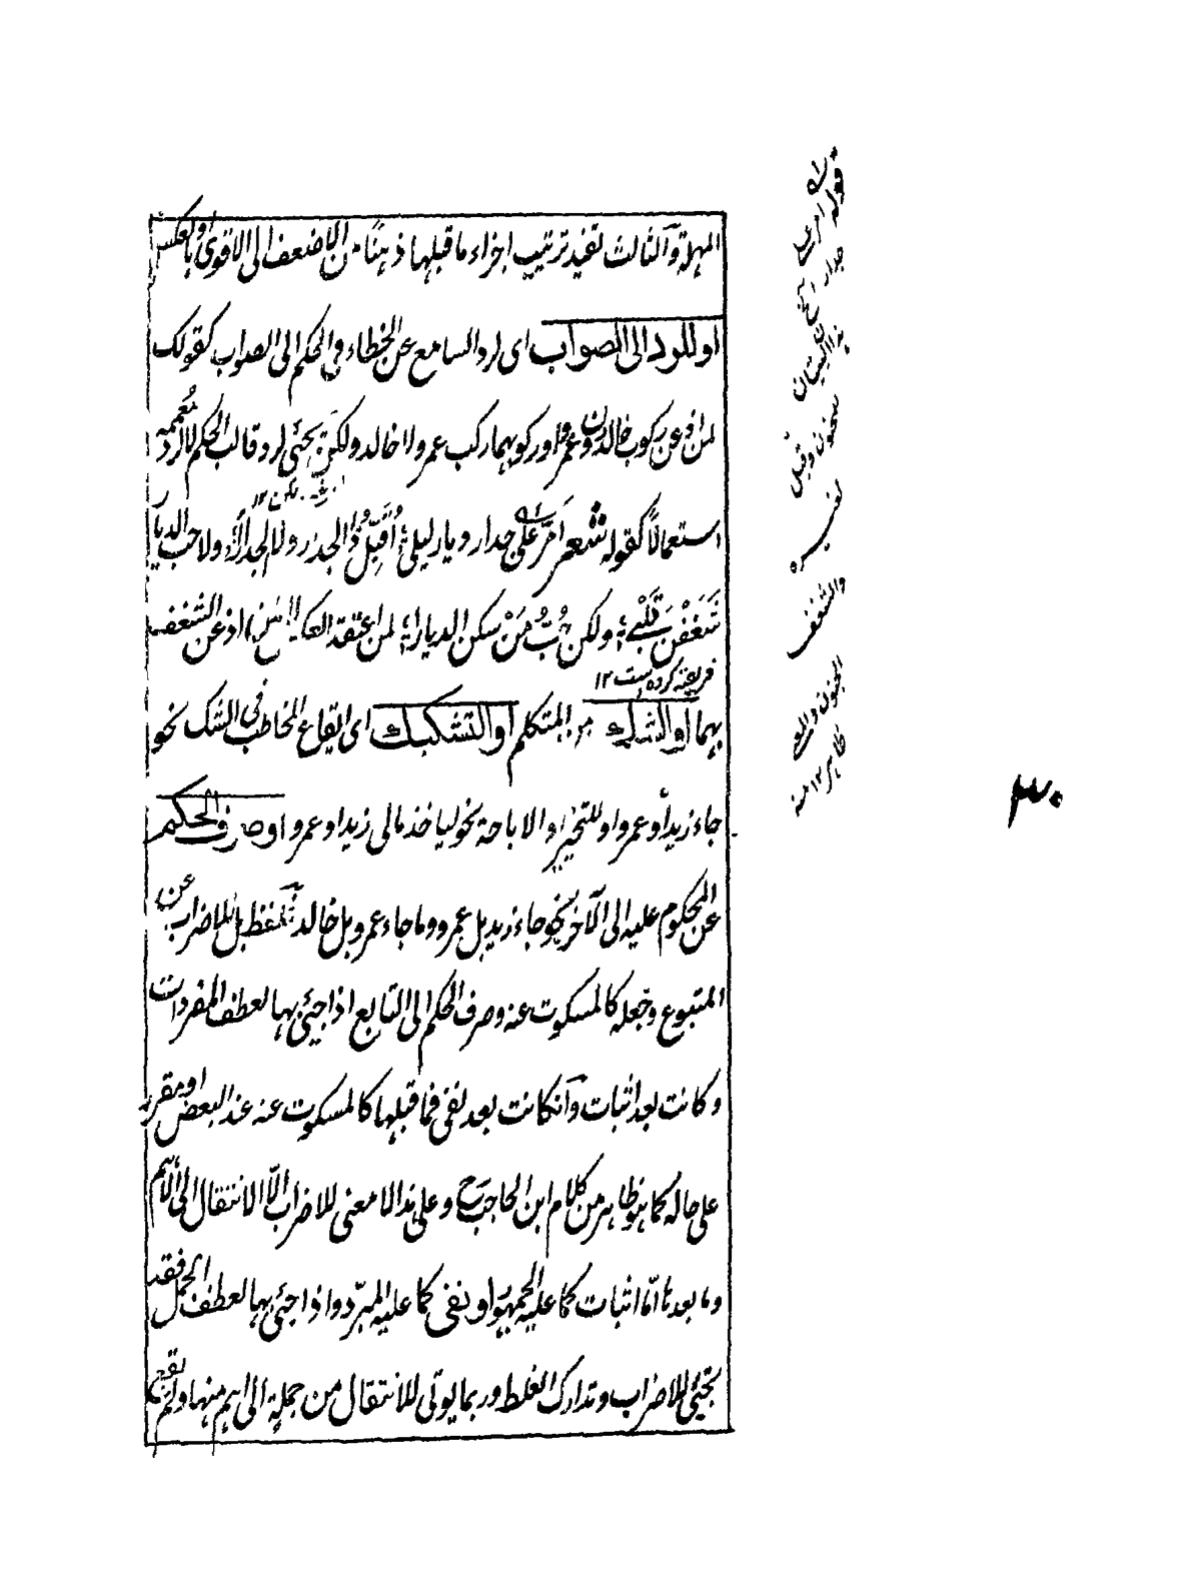 المهلة والثالث تفيد ترتيب اجزاء ما قبلها ذهنًا من الاضعف الى الاقوى او بالعكس
او للرد الى الصواب اى لرد السامع عن الخطاء فى الحكم الى الصواب كقولك
لمن عن ركوب خالد دون عمرو او ركوبهما ركب عمرو لا خالد ولكن تجئى لرد قالب الحكم لا لرد معممه
استعمالًا كقوله شعر اَمُرّ على جدار ديار ليلى؛ اُقَبِّلُ ذا الجدار وذا الجدارا؛ ولا حب الديار
شَغَفْنَ قَلْبِى؛ ولكن حُبُّ مَنْ سكن الديارا؛ لمن اعتقد اذ عن الشغف
فريفته كرده است ١٢
بهما او الشك من المتكلم او التشكيك اى ايقاع المخاطب فى الشك نحو
جاء زيد أو عمرو او للتخيير او الاباحة نحو ليأخذ مالى زيد او عمرو او صرف الحكم
عن المحكوم عليه الى الآخر نحو جاء زيد بل عمرو وما جاء عمرو بل خالد فلفظ بل للاضراب عن
المتبوع وجعله كالمسكوت عنه وصرف الحكم الى التابع اذا جئى بها لعطف المفردات
وكانت بعد اثبات وآنكانت بعد نفى فما قبلها كالمسكوت عنه عند البعض او مقرر
على حاله كما هو ظاهر من كلام ابن الحاجب رح وعلى هذا لا معنى للاضراب الّا الانتقال الى الاهم
وما بعدها امّا اثبات كما عليه الجمهور او نفى كما عليه المبرّد واذا جئى بها لعطف الجمل فقد
تجئى للاضراب وتدارك الغلط وربما يوتى للانتقال من جملة الى اهم منها ولم يقع
قوله امر على
جدار
البيتان
مجنون وقيل
لغيره
والشغف
الجنون والمعنى
ظاهر ١٢ منه
٣٠